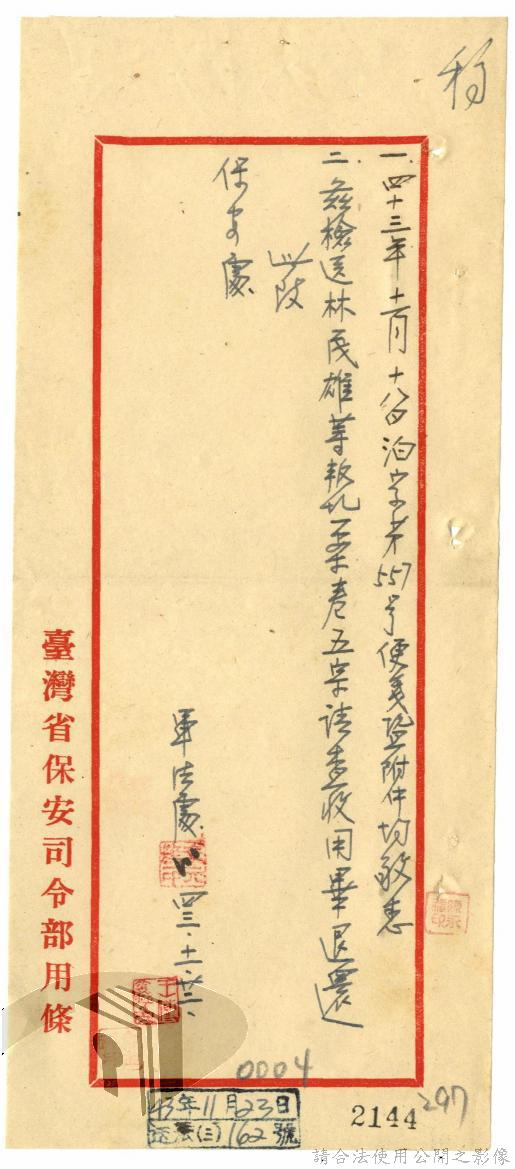 稿
一、四十三年十一月十八日泊字第557号便箋暨附件均敬悉
二、兹檢送林茂雄等叛乱案卷五宗請查收用畢退還
此致
保安處
軍法處 四三、十一、廿三、
臺灣省保安司令部用條
0004
43年11月23日
(三)162號
2144
297
請合法使用公開之影像